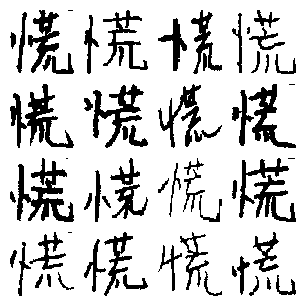 慌慌慌慌
慌慌慌慌
慌慌慌慌
慌慌慌慌